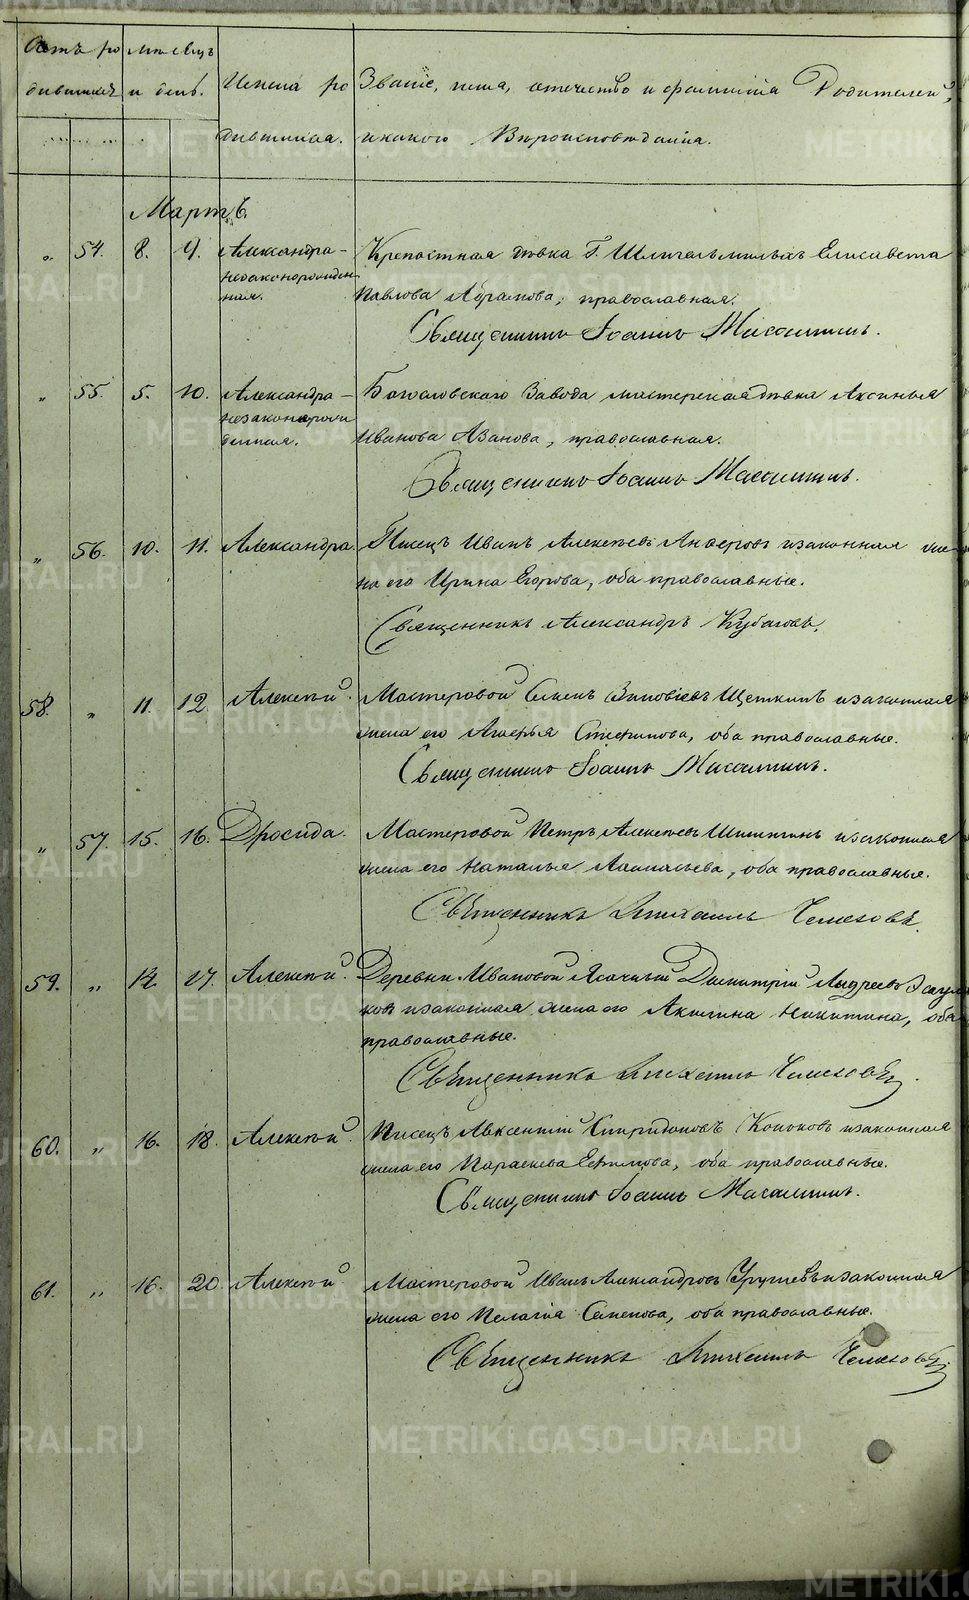 METRIKI.GASO-URAL.RU
Счетъ ро мѣсяцъ
дившихся и день. Имена ро Званіе, имя, отечество и фамилія Родителей,
дившихся. и какого Вѣроисповѣданія.
Мартъ.
" 54. 8. 9. Александра – Крепостная дѣвка Г. Елисавета
незаконорожден
ная. Павлова Абрамова, православная.
Священникъ Іоаннъ
" 55. 5. 10. Александра – Богословскаго Завода мастерская дѣвка Аксинья
незаконорож
денная. Иванова Азанова, православная.
Священникъ Іоаннъ
" 56. 10. 11. Александра. Писецъ Иванъ Алексѣевъ и законная же
на его Ирина Егорова, оба православные.
Священникъ Александръ
58. " 11. 12. Алексѣй. Мастеровой Семенъ Зиновіевъ Щеткинъ и законная
жена его Стефанова, оба православные.
Священникъ Іоаннъ
" 57. 15. 16. Дросида. Мастеровой Петръ Алексѣевъ и законная
жена его Наталья Афанасьева, оба православные.
Священникъ Михаилъ
59. " 14. 17. Алексѣй. Деревни Ивановой Ясачный Димитрій Андреевъ
ковъ и законная жена его Акилина Никитина, оба
православные.
Священникъ Михаилъ
60. " 16. 18. Алексѣй. Писецъ Авксентій Спиридоновъ и законная
жена его Параскева Ефимова, оба православные.
Священникъ Іоаннъ
61. " 16. 20. Алексѣй. Мастеровой Иванъ Александровъ и законная
жена его Пелагія Семенова, оба православные.
Священникъ Михаилъ
METRIKI.GASO-URAL.RU
METRIKI.GASO-URAL.RU